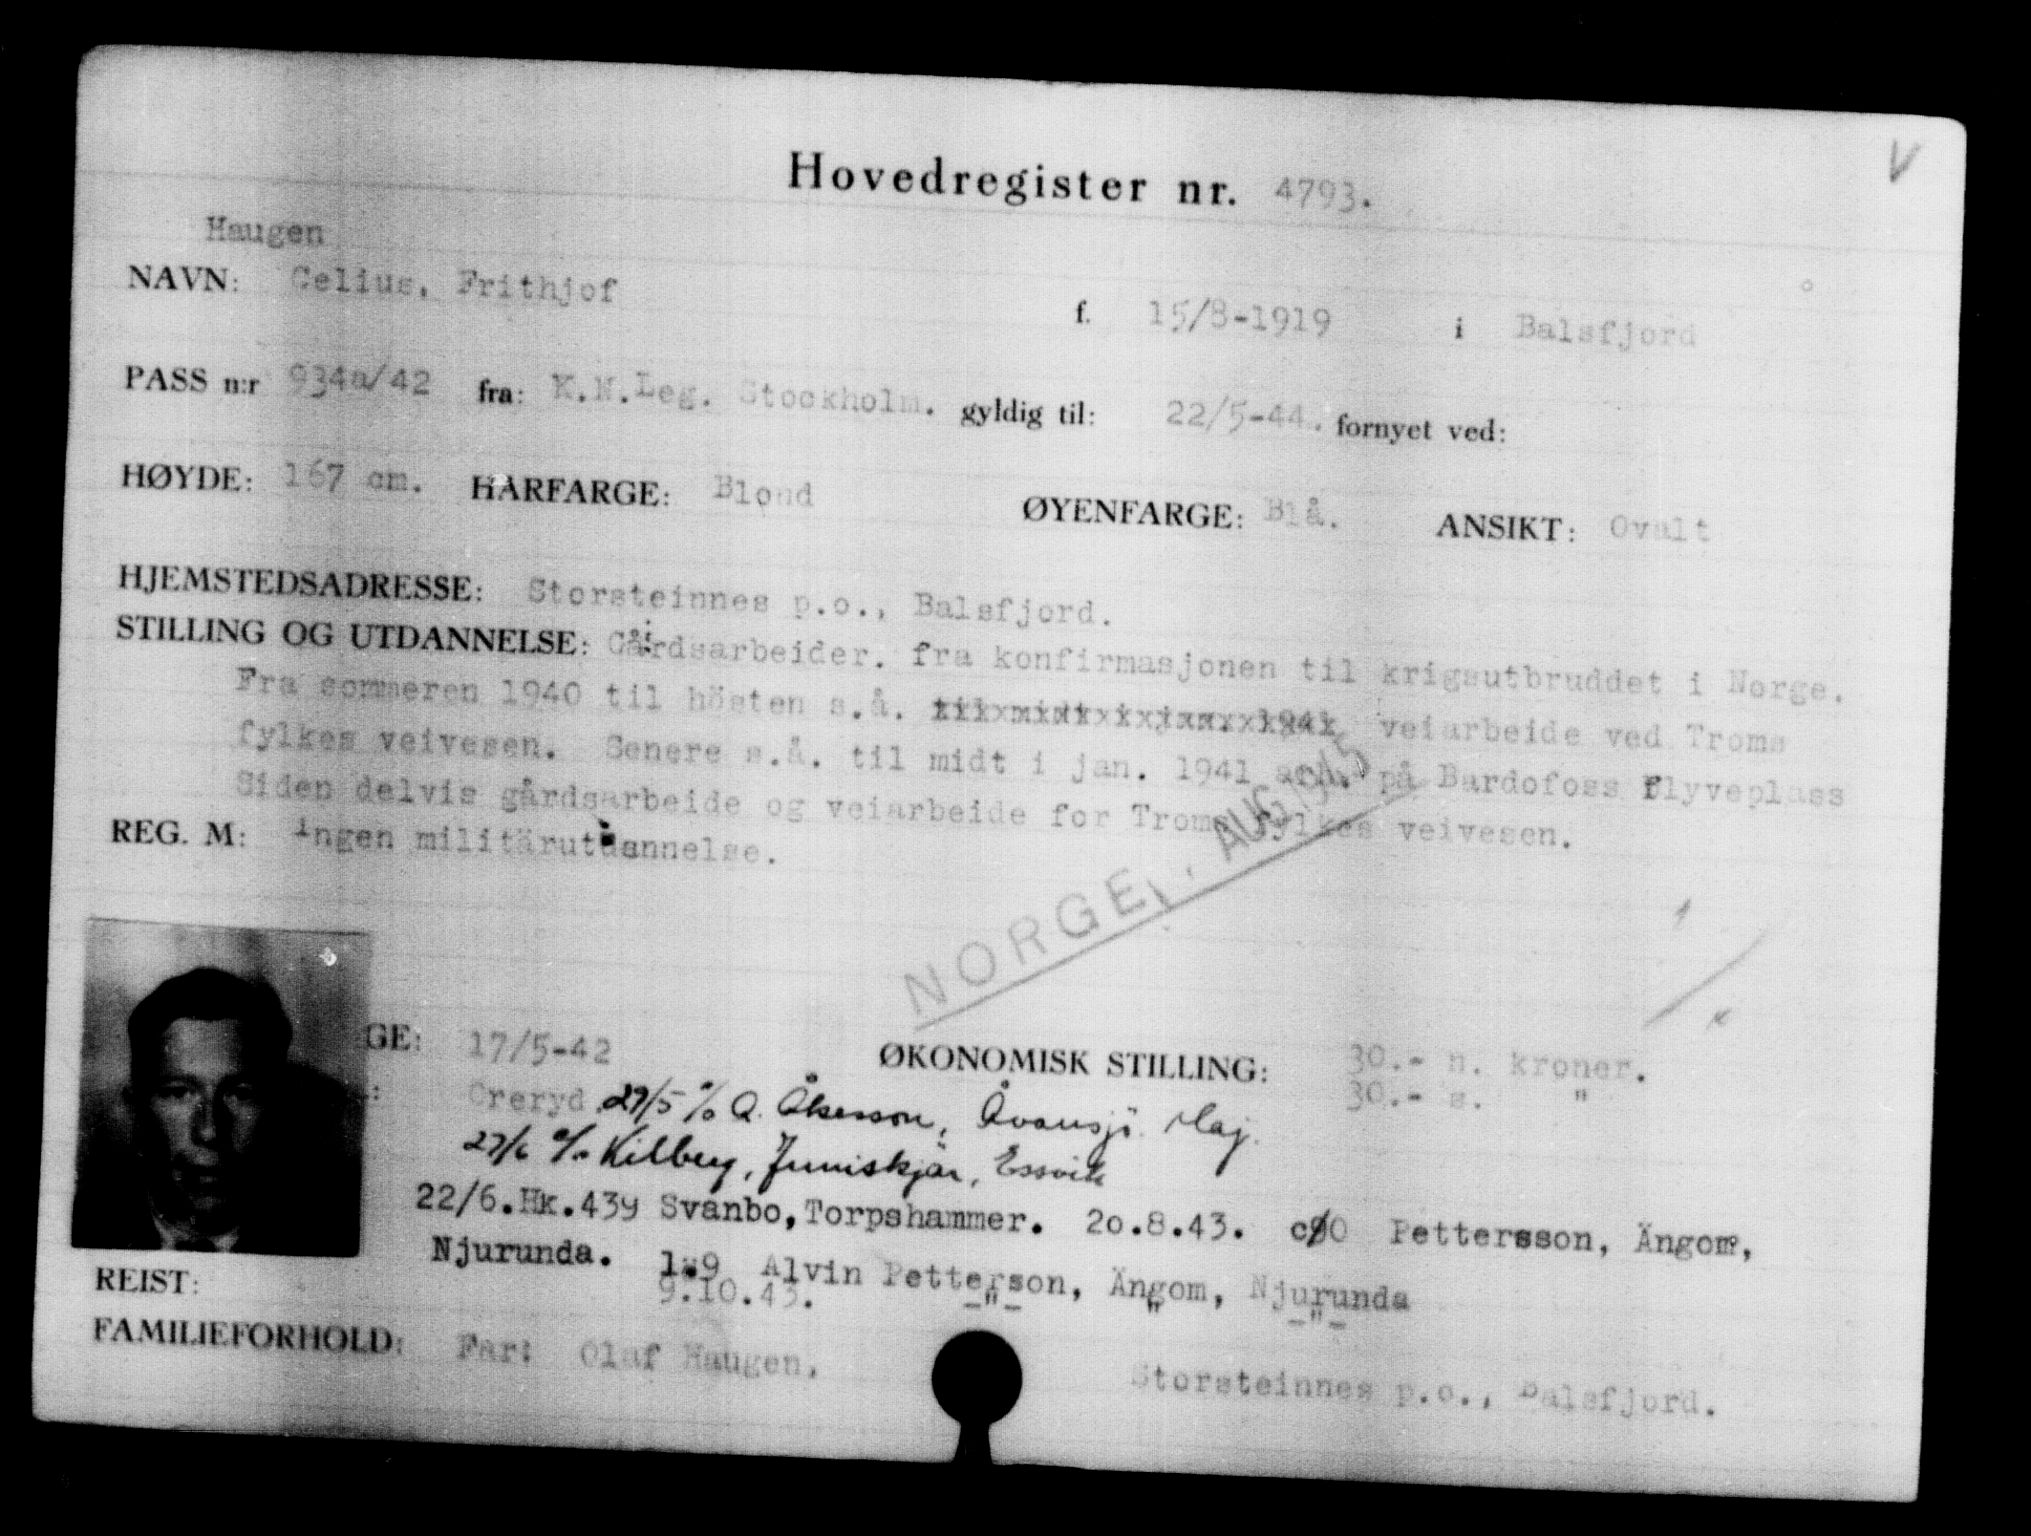 V
Hovedregister nr. 4793.
Haugen
NAVN: Celius, Frithjof f. 15/8-1919 i Balsfjord
PASS n:r 934a/42 fra: K.N.Leg. Stockholm. gyldig til: 22/5-44. fornyet ved:
HØYDE: 167 cm. HÅRFARGE: Blond ØYENFARGE: Blå. ANSIKT: Ovalt
HJEMSTEDSADRESSE: Storsteinnes p.o., Balsfjord.
STILLING OG UTDANNELSE: Gårdsarbeider. fra konfirmasjonen til krigsutbruddet i Norge.
Fra sommeren 1940 til hösten s.å. veiarbeide ved Troms
fylkes veivesen. Senere s.å. til midt i jan. 1941 arb. på Bardofoss flyveplass
Siden delvis gårdsarbeide og veiarbeide for Troms fylkes veivesen.
REG. M: Ingen militärutdannelse.
NORGE, AUG 1945
GE: 17/5-42 ØKONOMISK STILLING: 30.- n. kroner.
Öreryd 29/5 c/o A. Åkesson, Åvansjö. 30.- s. "
27/6 c/o Kilberg, Juniskjär, Essvik
22/6.Hk.439 Svanbo, Torpshammer. 20.8.43. c/o Pettersson, Ängom,
Njurunda. 1.9 Alvin Petterson, Ängom, Njurunda
9.10.43. -"- " -"-
REIST:
FAMILIEFORHOLD: Far: Olaf Haugen, Storsteinnes p.o., Balsfjord.